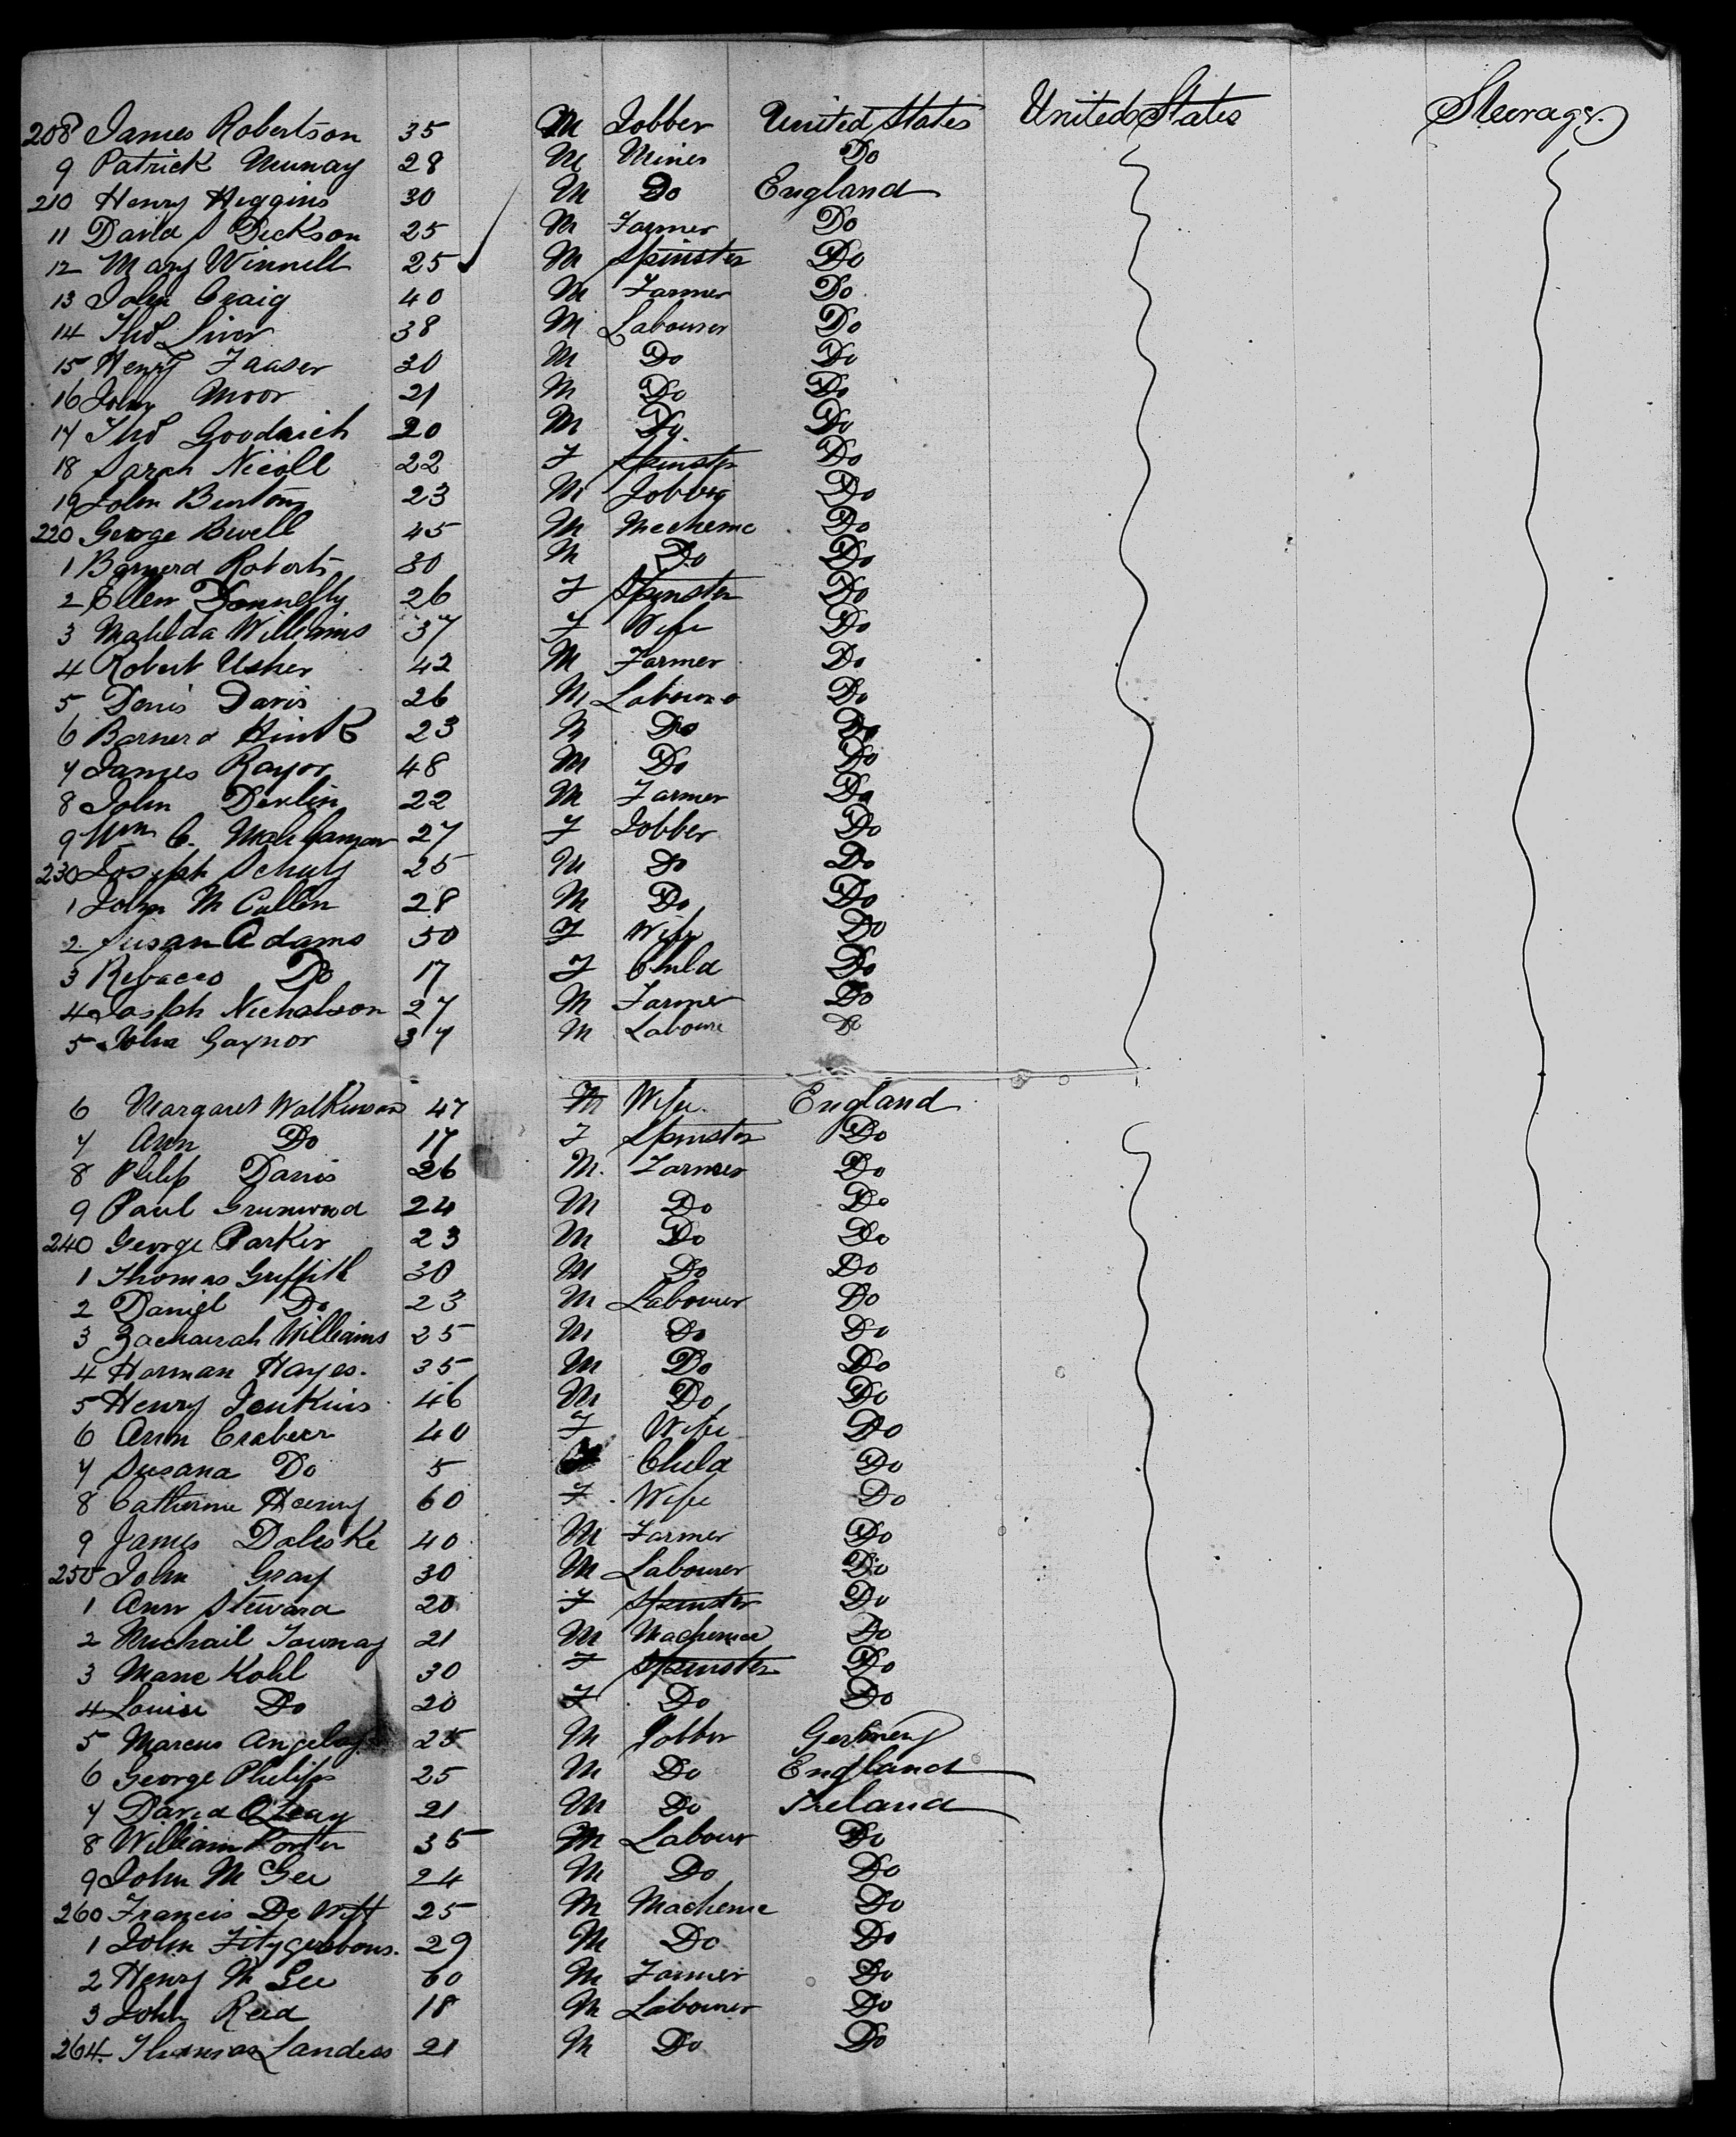 208 James Robertson 35 M Jobber United States United States Steerage.
9 Patrick Murray 28 M Miner Do
210 Henry Higgins 30 M Do England
11 David S Dickson 25 M Farmer Do
12 Mary Winnell 25 M Spinster Do
13 John Craig 40 M Farmer Do
14 Thos 38 M Labourer Do
15 Henry Faaser 30 M Do Do
16 John Moor 21 M Do Do
17 Thos Goodrich 20 M Do Do
18 Sarah Nicoll 22 F Spinster Do
19 John Burton 23 M Do
220 George Bevell 45 M Mecheme Do
1 Barnerd Roberts 30 M Do Do
2 Ellen Donnelly 26 F Spinster Do
3 Matilda Williams 37 F Wife Do
4 Robert Usher 42 M Farmer Do
5 Denis Davis 26 M Do
6 Barnerd 23 M Do Do
7 James Raynor 48 M Do Do
8 John Devlin 22 M Farmer Do
9 Wm C. 27 F Jobber Do
230 Joseph Schuly 25 M Do Do
1 John M Cullen 28 M Do Do
2 Susan Adams 50 F Wife Do
3 Rebacco Do 17 F Child Do
4 Joseph Nicholson 27 M Farmer Do
5 John Gaynor 37 M Laboure Do
6 Margaret Walkinson 47 M Wife. England
7 Ann Do 17 F Spinster Do
8 Philip Davis 26 M. Farmer Do
9 Paul Grunwood 24 M Do Do
240 George Parker 23 M Do Do
1 Thomas Griffith 30 M Do Do
2 Daniel Do 23 M Labourer Do
3 Zachariah Williams 25 M Do Do
4 Harman Hayes. 35 M Do Do
5 Henry Jenkins 46 M Do Do
6 Ann Crabeer 40 F Wife Do
7 Susana Do 5 Child Do
8 Catherine Henry 60 F. Wife Do
9 James Doleske 40 M Farmer Do
250 John Gray 30 M Labourer Do
1 Ann Steward 20 F Spinster Do
2 Michail Townay 21 M Do
3 Marie Kohl 30 F Spinster Do
4 Louise Do 20 F Do Do
5 Marcus 25 M Jobber Germeny
6 George Philips 25 M Do England
7 David 21 M Do Ireland
8 William Porter 35 M Labour Do
9 John M Gee 24 M Do Do
260 Francis De Witt 25 M Macheme Do
1 John Fitzgebbons. 29 M Do Do
2 Henry M Gee 60 M Farmer Do
3 John Reid 18 M Labourer Do
264. Thomas Landess 21 M Do Do